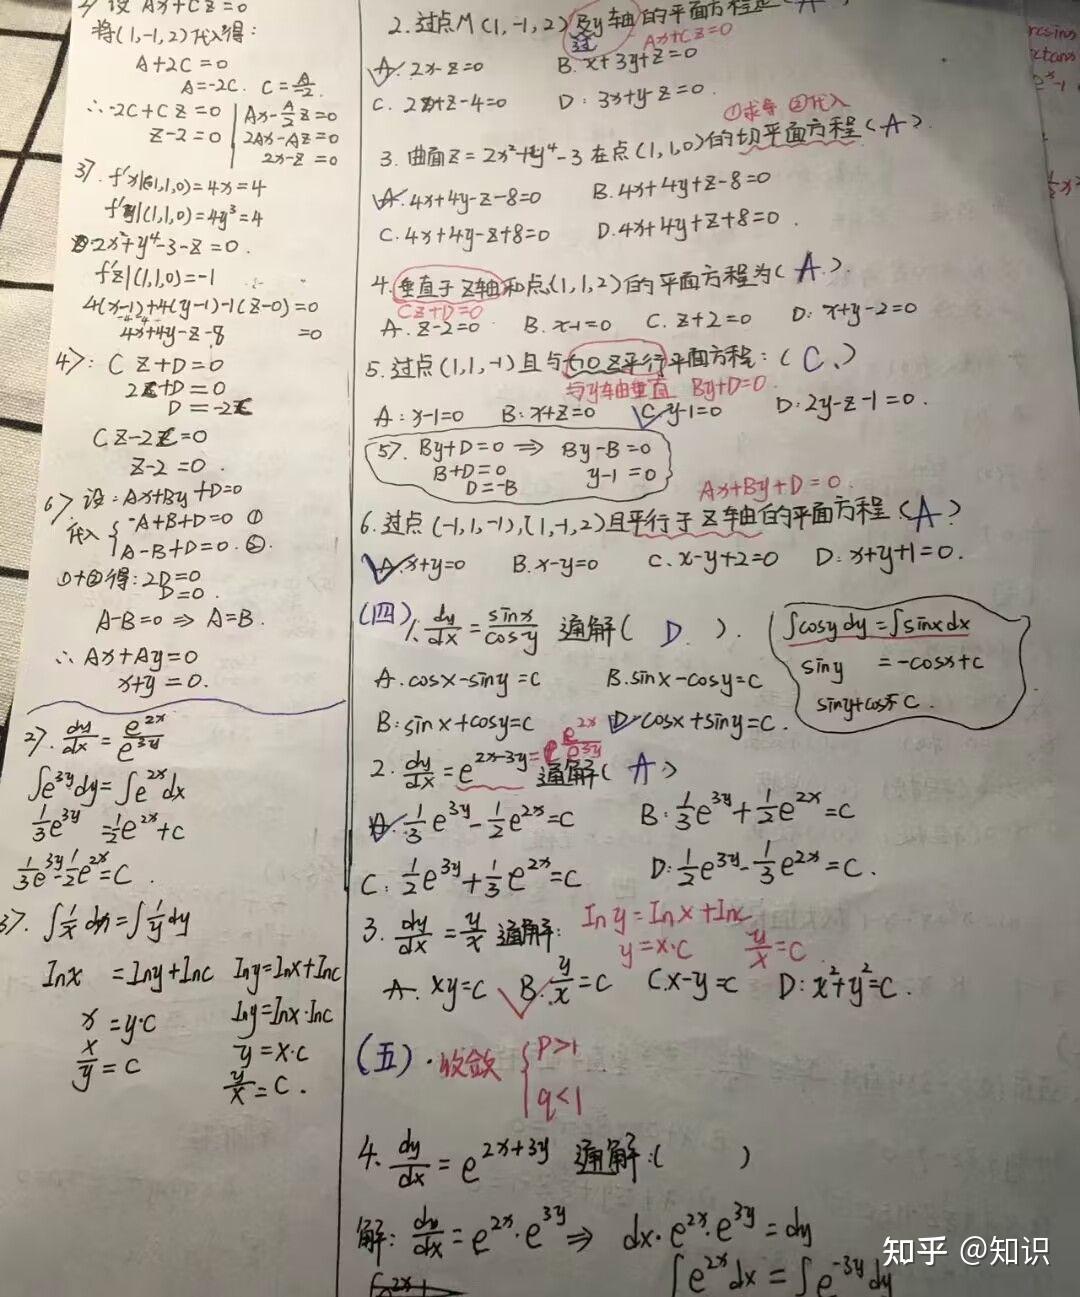 2) 设 Ax+Cz=0
将(1,-1,2)代入得:
A+2C=0
A=-2C. C=-A/2.
∴ -2C+Cz=0
z-2=0
Ax-A/2z=0
2Ax-Az=0
2x-z=0
3). f'x|(1,1,0)=4x=4
f'y|(1,1,0)=4y³=4
2x²+y⁴-3-z=0.
f'z|(1,1,0)=-1
4(x-1)+4(y-1)-1(z-0)=0
4x+4y-z-8=0
4): Cz+D=0
2C+D=0
D=-2C
Cz-2C=0
z-2=0.
6). 设:Ax+By+D=0
代入 { -A+B+D=0 ①
A-B+D=0. ②.
①+②得:2D=0
D=0.
A-B=0 ⇒ A=B.
∴ Ax+Ay=0
x+y=0.
2). dy/dx=e^2x/e^3y
∫e^3y dy=∫e^2x dx
1/3e^3y=1/2e^2x+c
1/3e^3y-1/2e^2x=C.
3). ∫1/x dx=∫1/y dy
Inx=Iny+Inc
x=y·c
x/y=C
Iny=Inx+Inc
Iny=Inx·Inc
y=x·c
y/x=C.
2.过点M(1,-1,2)及y轴的平面方程是(A)
过
Ax+Cz=0
A. 2x-z=0 B. x+3y+z=0
C. 2x+z-4=0 D: 3x+y-z=0.
①求导 ②代入
3.曲面z=2x²+y⁴-3在点(1,1,0)的切平面方程(A).
A. 4x+4y-z-8=0 B. 4x+4y+z-8=0
C. 4x+4y-z+8=0 D. 4x+4y+z+8=0.
4.垂直于z轴和点(1,1,2)的平面方程为(A.).
Cz+D=0
A. z-2=0 B. x-1=0 C. z+2=0 D: x+y-2=0
5.过点(1,1,-1)且与xOz平行平面方程:(C.)
与y轴垂直 By+D=0.
A: x-1=0 B: x+z=0 C: y-1=0 D: 2y-z-1=0.
5). By+D=0 ⇒ By-B=0
B+D=0 y-1=0
D=-B
Ax+By+D=0.
6.过点(-1,1,-1),(1,-1,2)且平行于z轴的平面方程(A)
A. x+y=0 B. x-y=0 C. x-y+2=0 D: x+y+1=0.
(四) 1. dy/dx=sinx/cosy 通解( D ).
A. cosx-siny=C B. sinx-cosy=C
B: sinx+cosy=C D: cosx+siny=C.
∫cosydy=∫sinxdx
siny=-cosx+c
siny+cosx=C.
2. dy/dx=e^2x-3y=e^2x/e^3y 通解( A )
A. 1/3e^3y-1/2e^2x=C B: 1/3e^3y+1/2e^2x=C
C: 1/2e^3y+1/3e^2x=C D: 1/2e^3y-1/3e^2x=C.
3. dy/dx=y/x 通解:
Iny=Inx+Inc
y=x·C y/x=C.
A. xy=C B. y/x=C C. x-y=C D: x²+y²=C.
(五). 收敛 { p>1
q<1
4. dy/dx=e^2x+3y 通解:( )
解: dy/dx=e^2x·e^3y ⇒ dx·e^2x·e^3y=dy
∫e^2x dx=∫e^-3y dy
知乎 @知识